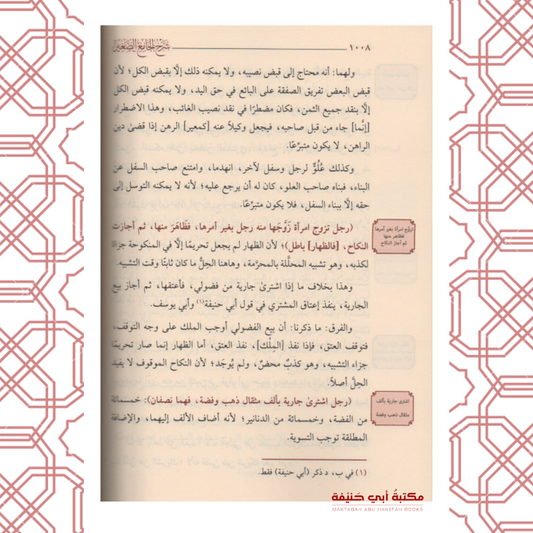 ١٠٠٨
شرح الجامع الصغير
ولهما: أنه محتاج إلى قبض نصيبه، ولا يمكنه ذلك إلّا بقبض الكل؛ لأن
قبض البعض تفريق الصفقة على البائع في حق اليد، ولا يمكنه قبض الكل
إلّا بنقد جميع الثمن، فكان مضطرًا في نقد نصيب الغائب، وهذا الاضطرار
[إنَّما] جاء من قبل صاحبه، فيجعل وكيلاً عنه [كمعير] الرهن إذا قضىٰ دين
الراهن، لا يكون متبرِّعًا.
وكذلك عُلُوٌّ لرجل وسفل لآخر، انهدما، وامتنع صاحب السفل عن
البناء، فبناه صاحب العلو، كان له أن يرجع عليه؛ لأنه لا يمكنه التوسل إلى
حقه إلّا ببناء السفل، فلا يكون متبرِّعًا.
(رجل تزوج امرأة زَوَّجها منه رجل بغير أمرها، فظَاهَرَ منها، ثم أجازت
النكاح، [فالظهار] باطل)؛ لأن الظهار لم يجعل تحريمًا إلّا في المنكوحة جزاءً
لكذبه، وهو تشبيه المحلَّلة بالمحرَّمة، وهاهنا الحِلُّ ما كان ثابتًا وقت التشبيه.
وهذا بخلاف ما إذا اشترىٰ جارية من فضولي، فأعتقها، ثم أجاز بيع
الجارية، ينفذ إعتاق المشتري في قول أبي حنيفة(١) وأبي يوسف.
والفرق: ما ذكرنا: أن بيع الفضولي أوجب الملك على وجه التوقف،
فتوقف العتق، فإذا نفذ [المِلْك]، نفذ العتق، أما الظهار إنما صار تحريمًا
جزاء التشبيه، وهو كذبٌ محضٌ، ولم يُوجَد؛ لأن النكاح الموقوف لا يفيد
الحِلَّ أصلاً.
(رجل اشترىٰ جارية بألف مثقال ذهب وفضة، فهما نصفان): خمسمائة
من الفضة، وخمسمائة من الدنانير؛ لأنه أضاف الألف إليهما، والإضافة
المطلقة توجب التسوية.
(١) في ب، د ذكر (أبي حنيفة) فقط.
تزوج امرأة بغير أمرها
فظاهر منها
ثم أجاز النكاح
اشترى جارية بألف
مثقال ذهب وفضة
مكتبة أبي حنيفة
MAKTABAH ABU HANIFAH BOOKS